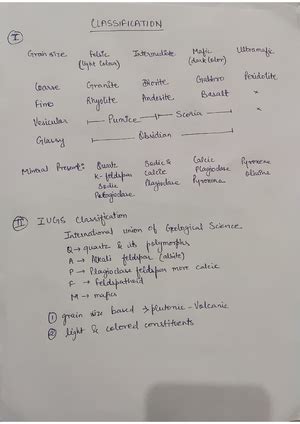 CLASSIFICATION
I
Grain size Felsic Intermediate Mafic Ultramafic
(light colour) (dark color)
Coarse Granite Diorite Gabbro Peridotite
Fine Rhyolite Andesite Basalt x
Vesicular Pumice Scoria x
Glassy Obsidian
Mineral Present: Quartz Sodic & Calcic Pyroxene
K-feldspar calcic Plagioclase
Sodic Plagioclase Pyroxene
II IUGS Classification
International union of Geological Science
Q → quartz & its polymorphs
A → Alkali feldspar (albite)
P → Plagioclase feldspar more calcic
F → Feldspathoid
M → mafics
1 grain size based → plutonic - Volcanic
2 light & colored constituents